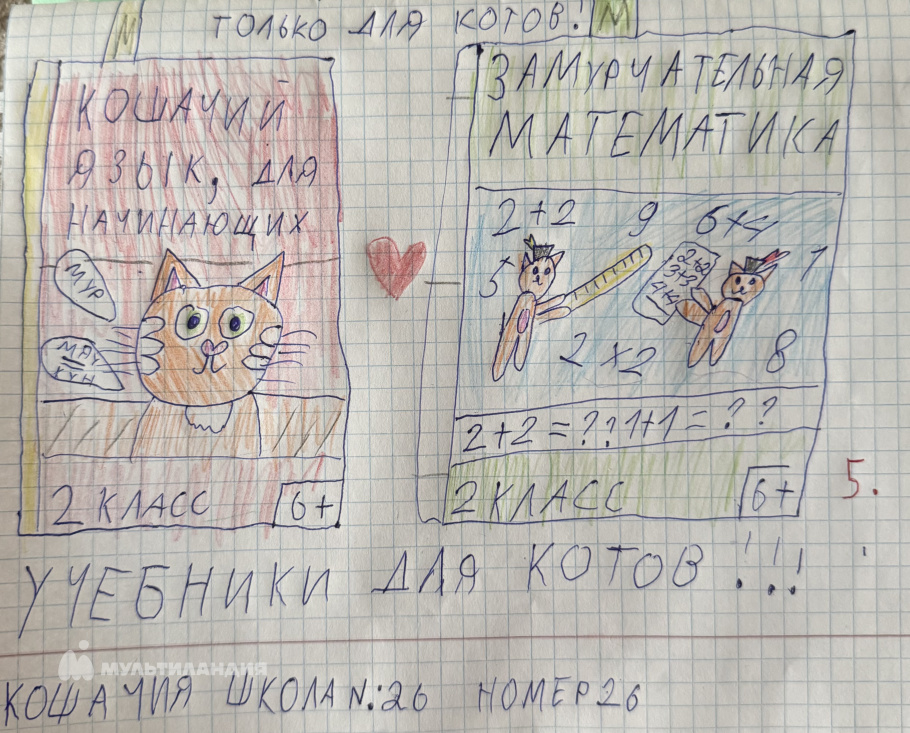 М ТОЛЬКО ДЛЯ КОТОВ! М
КОШАЧИЙ
ЯЗЫК, ДЛЯ
НАЧИНАЮЩИХ
МУР
2 КЛАСС 6+
ЗАМУРЧАТЕЛЬНАЯ
МАТЕМАТИКА
2+2 9 6+4
5 1
2+2
3+3
4+4
2×2 8
2+2=??1+1=??
2 КЛАСС 6+
5.
УЧЕБНИКИ ДЛЯ КОТОВ!!!
МУЛЬТИЛАНДИЯ
КОШАЧИЯ ШКОЛА N:26 НОМЕР26